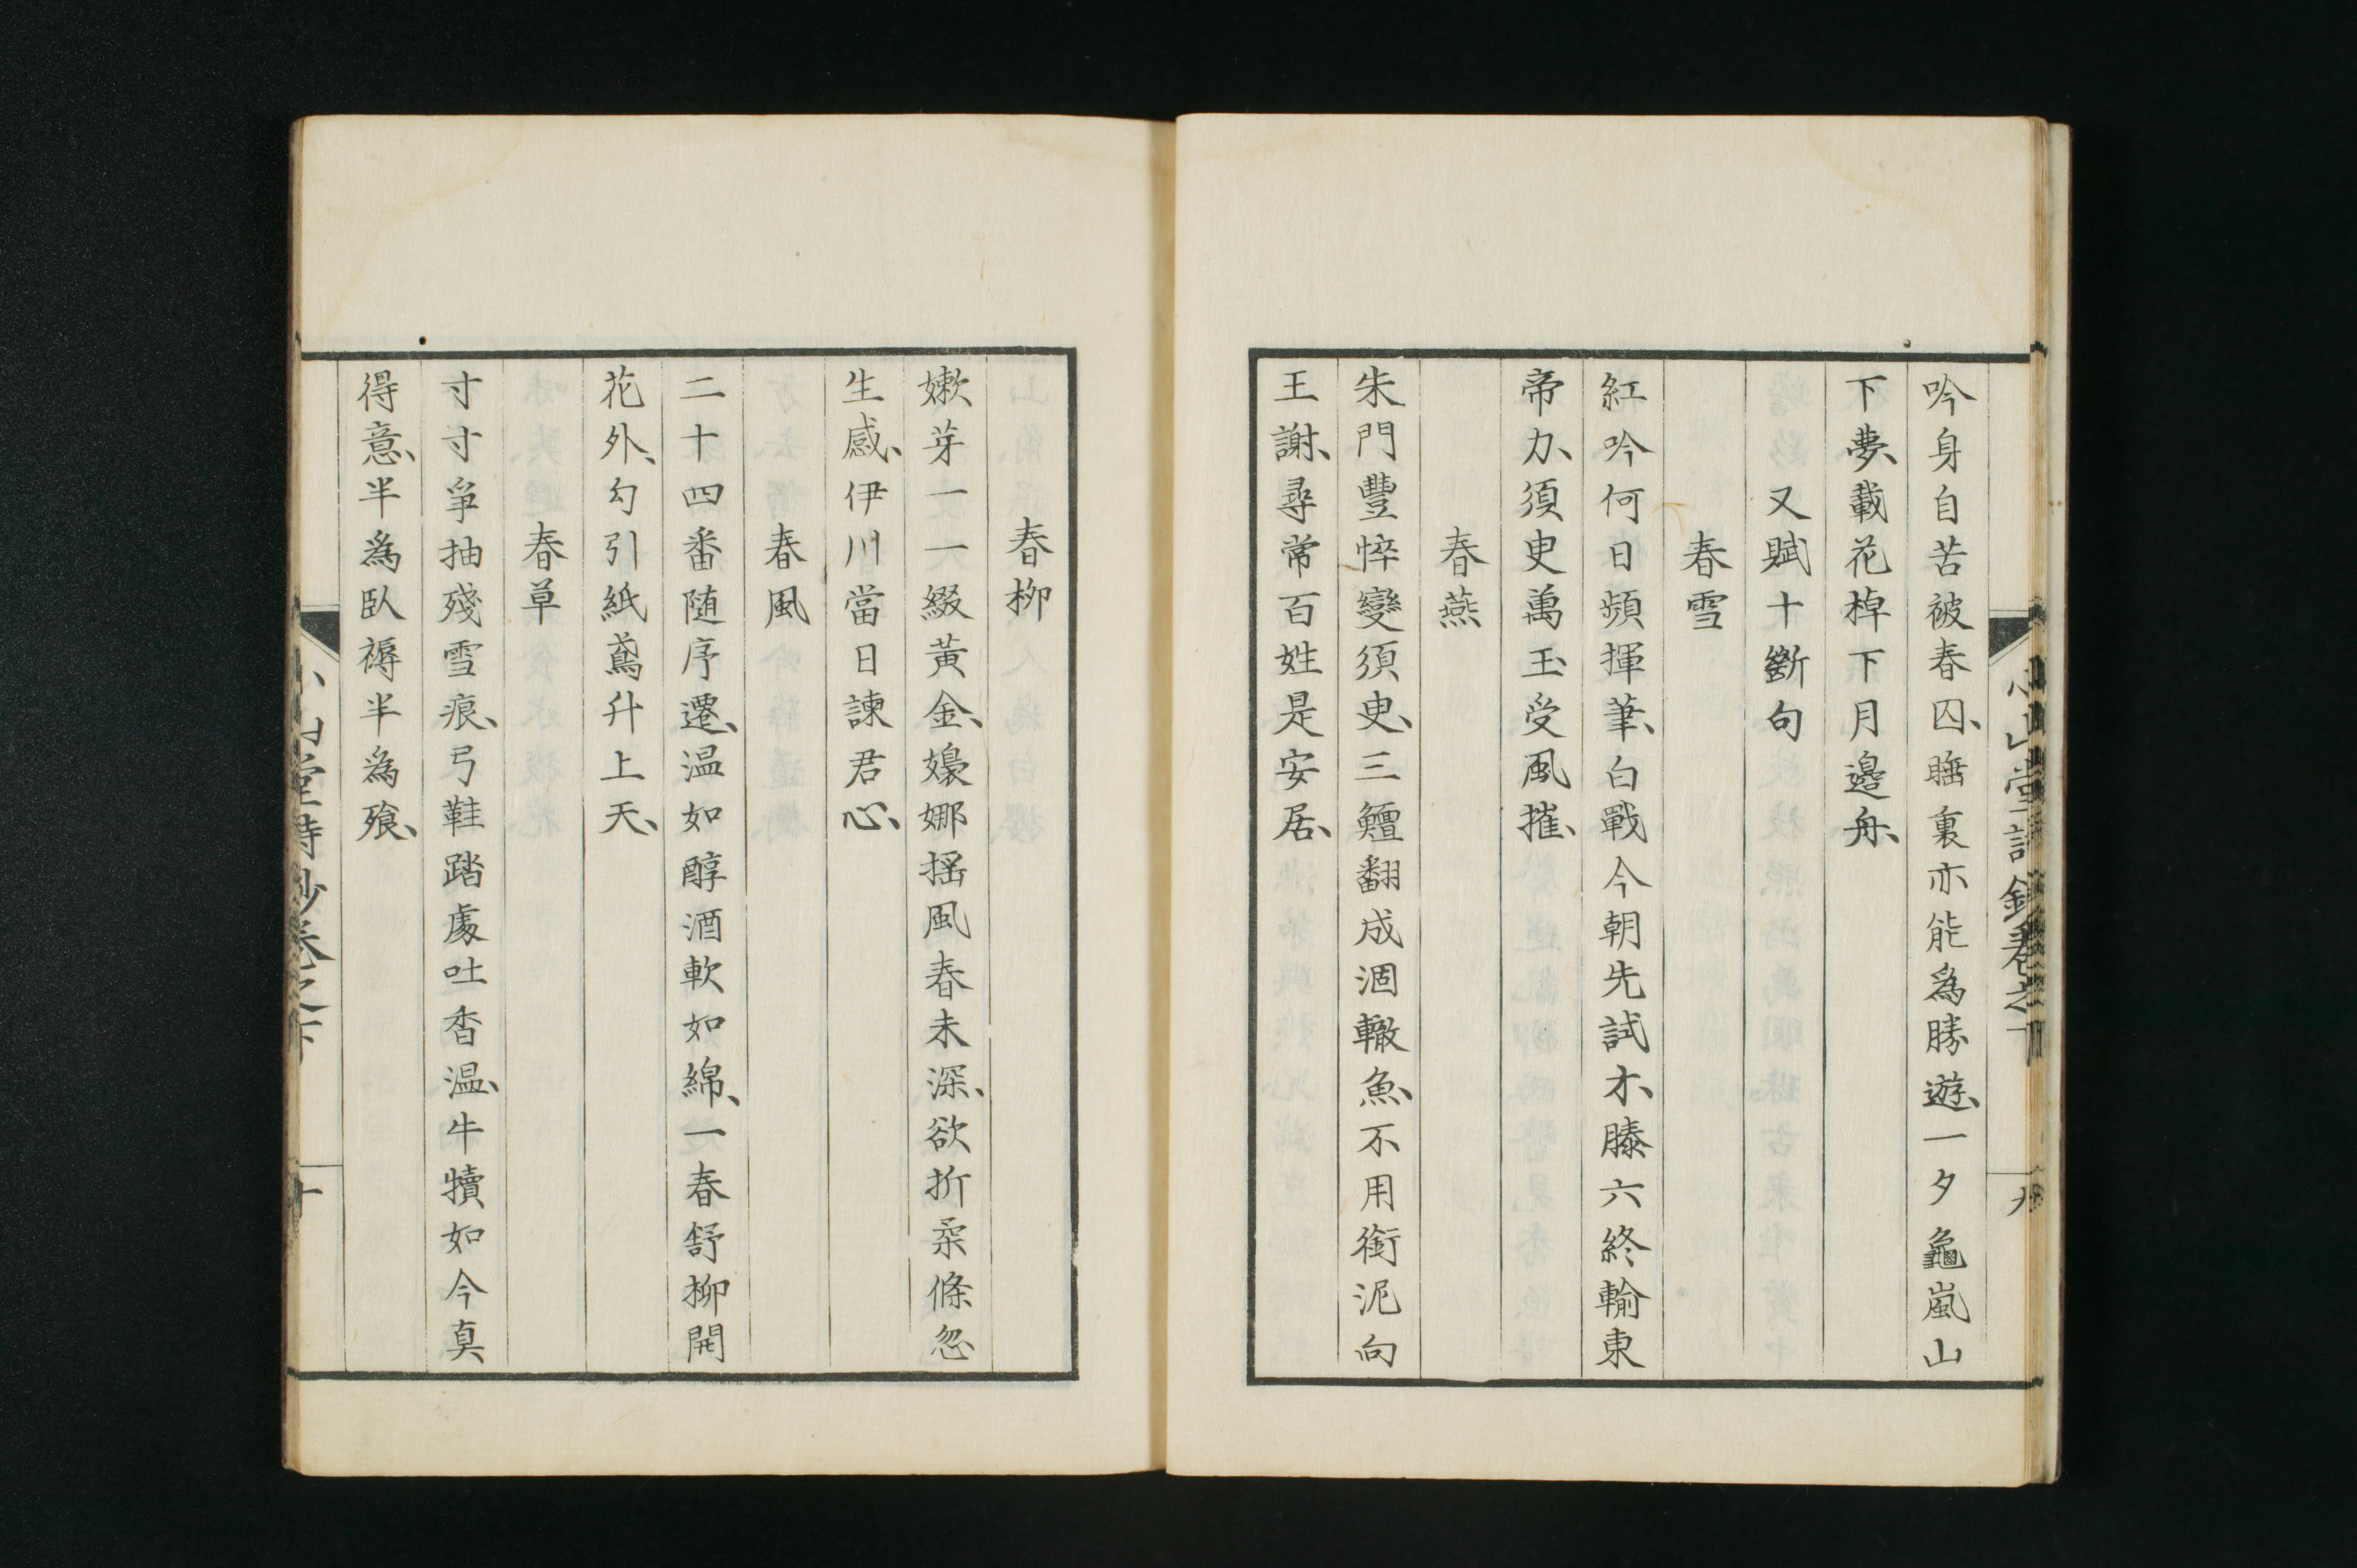 吟身自苦被春囚、睡裏亦能為勝遊、一夕龜嵐山
下夢、載花棹下月邊舟、
又賦十斷句
春雪
紅吟何日頻揮筆、白戰今朝先試才、滕六終輸東
帝力、須臾萬玉受風摧、
春燕
朱門豐悴變須臾、三鱣翻成涸轍魚、不用銜泥向
王謝、尋常百姓是安居、
春柳
嫩芽一一綴黃金、嬝娜搖風春未深、欲折柔條忽
生感、伊川當日諫君心、
春風
二十四番随序遷、温如醇酒軟如綿、一春舒柳開
花外、勾引紙鳶升上天、
春草
寸寸爭抽殘雪痕、弓鞋踏處吐香温、牛犢如今真
得意、半為臥褥半為飱、
小山堂詩鈔卷之下
十